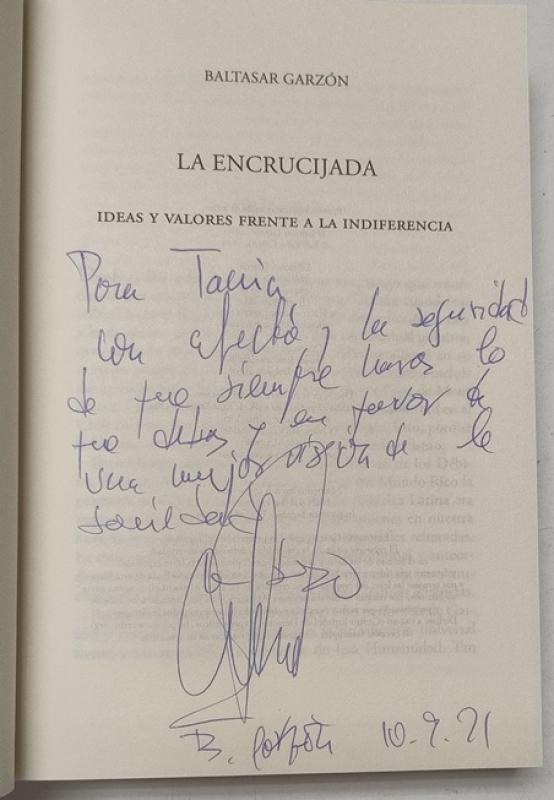 BALTASAR GARZÓN
LA ENCRUCIJADA
IDEAS Y VALORES FRENTE A LA INDIFERENCIA
Para Tania
con afecto y la seguridad
de que siempre haras lo
que debas y en favor de
una mejor visión de la
B. Garzón 10.9.21